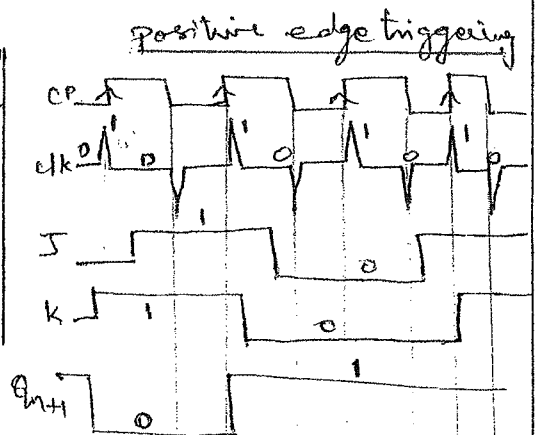 positive edge triggering
CP
clk 0 1 0 1 0 1 0 1 0
J 1 0
K 1 0
Qn+1 0 1